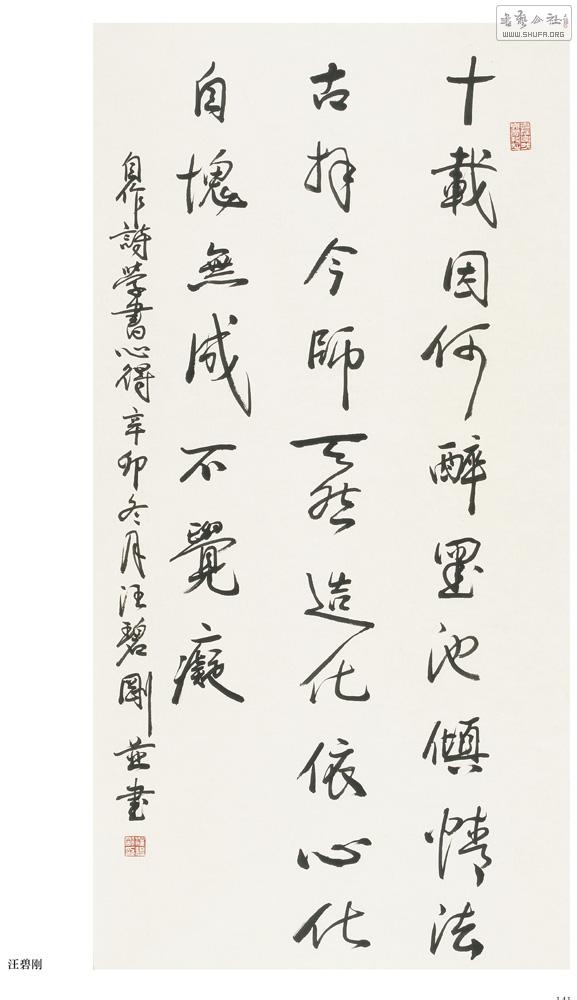 書藝公社
WWW.SHUFA.ORG
十載因何醉墨池傾情法
古拜今師天然造化依心化
自愧無成不覺癡
自作詩學書心得辛卯冬月汪碧剛並書
汪碧刚